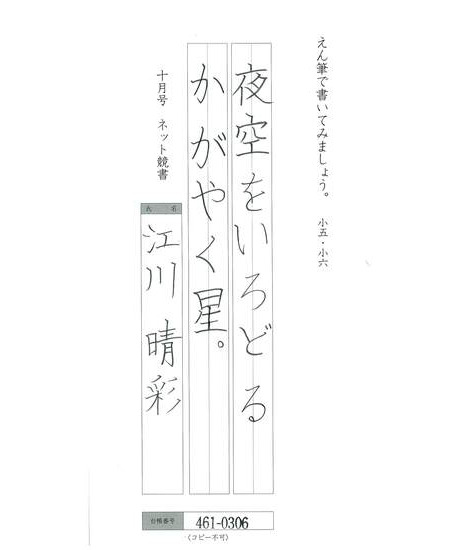 えん筆で書いてみましょう。 小五・小六
夜空をいろどる
かがやく星。
十月号 ネット競書
氏名
江川 晴彩
台帳番号 461-0306
(コピー不可)